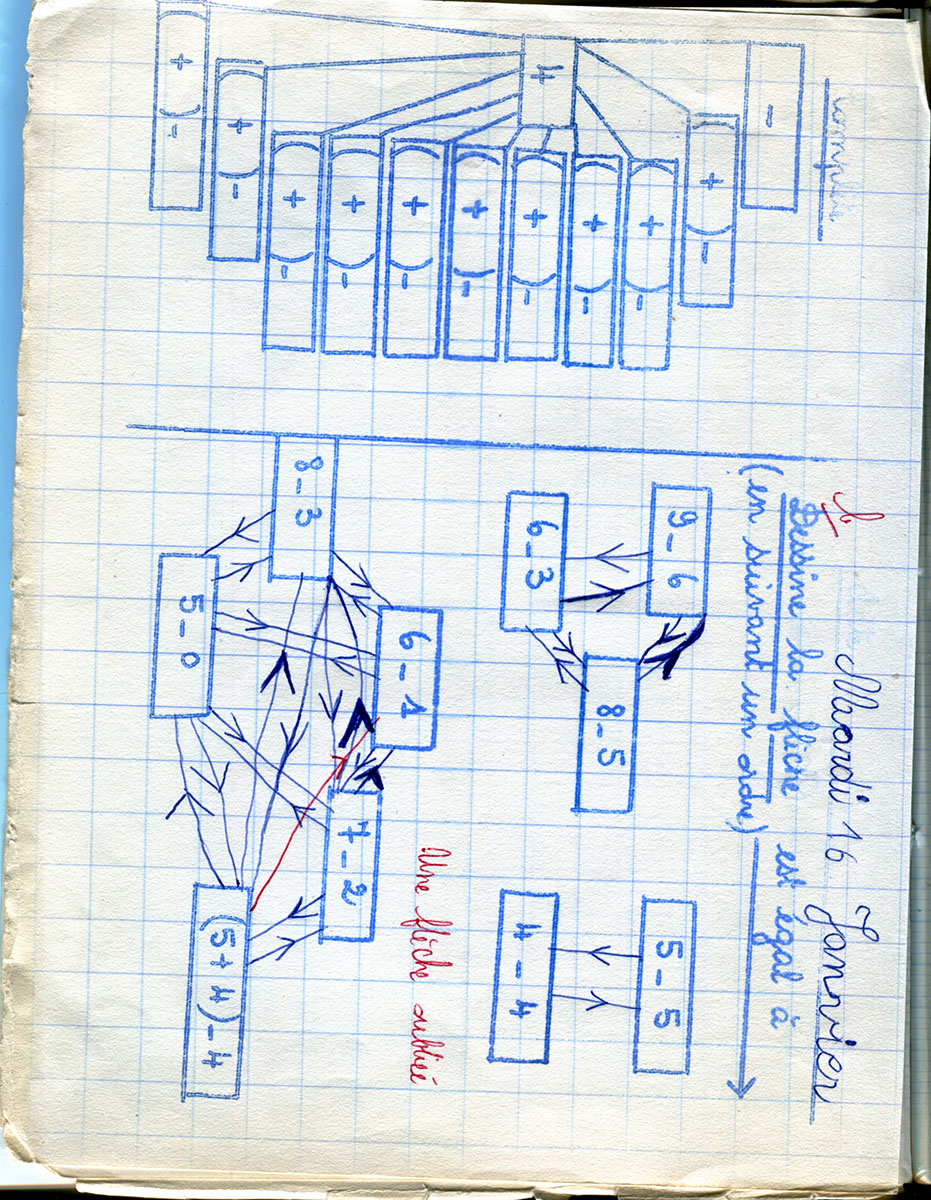 Mardi 16 Janvier
Dessine la flèche est égal à
(en suivant un ordre)
9-6
6-3
8-5
5-5
4-4
Une flèche oubliée
6-1
8-3
7-2
5-0
(5+4)-4
-
( + ) -
( + ) -
( + ) -
( + ) -
4
( + ) -
( + ) -
( + ) -
( + ) -
( + ) -
( + ) -